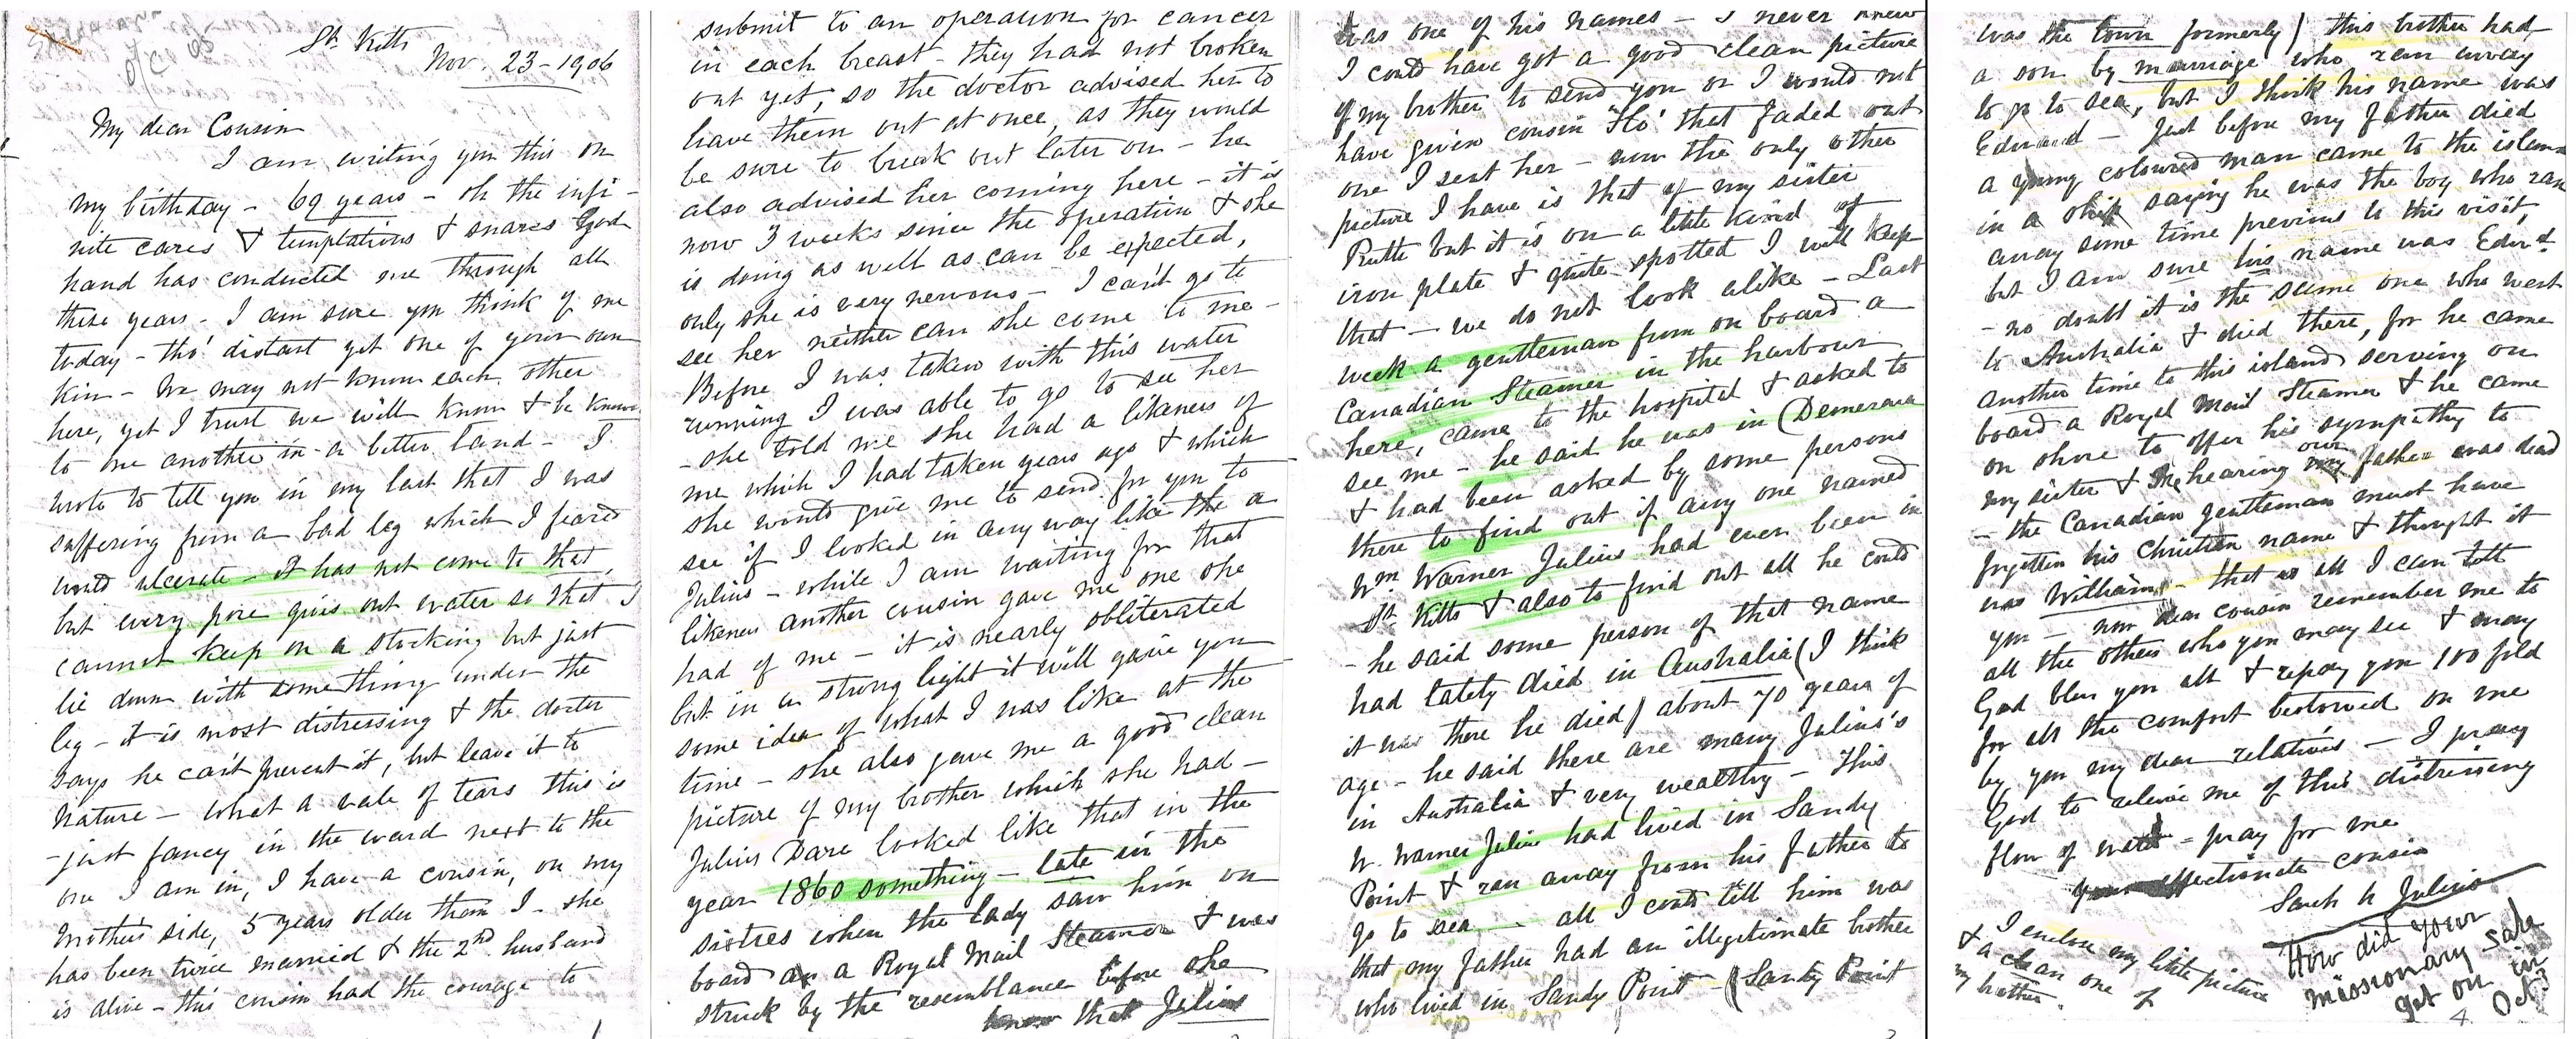 St. Kitts
Nov. 23 - 1906
My dear Cousin
I am writing you this on
my birthday - 69 years - oh the infi-
nite cares & temptations & snares God
hand has conducted me through all
these years - I am sure you think of me
today - tho' distant yet one of your own
kin - We may not know each other
here, yet I trust we will know & be known
to one another in a better land - I
wrote to tell you in my last that I was
suffering from a bad leg which I feared
would ulcerate - it has not come to that,
but every pore gives out water so that I
cannot keep on a stocking but just
lie down with something under the
leg - it is most distressing & the doctor
says he can't prevent it, but leave it to
Nature - What a vale of tears this is
- just fancy in the ward next to the
one I am in, I have a cousin, on my
Mother's side, 5 years older than I - she
has been twice married & the 2nd husband
is alive - this cousin had the courage to
1
submit to an operation for cancer
in each breast - they had not broken
out yet, so the doctor advised her to
have them out at once, as they would
be sure to break out later on - he
also advised her coming here - it is
now 3 weeks since the operation & she
is doing as well as can be expected,
only she is very nervous - I can't go to
see her neither can she come to me -
Before I was taken with this water
running I was able to go to see her
- she told me she had a likeness of
me which I had taken years ago & which
she would give me to send for you to
see if I looked in any way like the a
Julius - while I am waiting for that
likeness another cousin gave me one she
had of me - it is nearly obliterated
but in a strong light it will give you
some idea of what I was like at the
time - she also gave me a good clean
picture of my brother which she had -
Julius Dare looked like that in the
year 1860 something - late in the
sixties when the lady saw him on
board a Royal Mail Steamer & was
struck by the resemblance before she
knew that Julius
was one of his names - I never knew
I could have got a good clean picture
of my brother to send you or I would not
have given cousin 'Flo' that faded out
one I sent her - now the only other
picture I have is that of my sister
Ruth but it is on a little kind of
iron plate & quite spotted I will keep
that - we do not look alike - Last
week a gentleman from on board a
Canadian Steamer in the harbour
here, came to the hospital & asked to
see me - he said he was in (Demerara
& had been asked by some persons
there to find out if any one named
Wm Warner Julius had ever been in
St. Kitts & also to find out all he could
- he said some person of that name
had lately died in Australia (I think
it was there he died) about 70 years of
age - he said there are many Julius's
in Australia & very wealthy - This
W. Warner Julius had lived in Sandy
Point & ran away from his father to
go to sea - all I could tell him was
that my father had an illegitimate brother
who lived in Sandy Point - (Sandy Point
was the town formerly) this brother had
a son by marriage who ran away
to go to sea, but I think his name was
Edward - Just before my father died
a young coloured man came to the island
in a ship saying he was the boy who ran
away some time previous to this visit,
but I am sure his name was Edwd
- no doubt it is the same one who went
to Australia & died there, for he came
another time to this island serving on
board a Royal Mail Steamer & he came
on shore to offer his sympathy to
my sister & me hearing our father was dead
- the Canadian gentleman must have
forgotten his Christian name & thought it
was William - that is all I can tell
you - now dear cousin remember me to
all the others who you may see & may
God bless you all & repay you 100 fold
for all the comfort bestowed on me
by you my dear relatives - I pray
God to relieve me of this distressing
flow of water - pray for me
Your affectionate cousin
Sarah h Julius
& I enclose my little picture
a clean one of
my brother.
How did your
missionary sale
get on in
Oct?
4